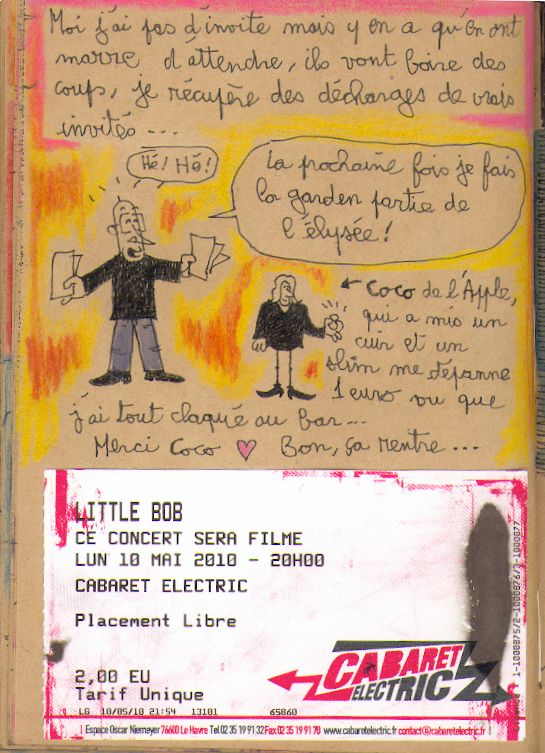 Moi j'ai pas d'invite mais y en a qu'en ont
marre d'attendre, ils vont boire des
coups, je récupère des décharges de vrais
invités ...
Hé! Hé!
La prochaine fois je fais
la garden partie de
l'élysée!
Coco de l'Apple,
qui a mis un
cuir et un
slim me dépanne
1 euro vu que
j'ai tout claqué au bar...
Merci Coco ♥ Bon, ça rentre ...
LITTLE BOB
CE CONCERT SERA FILME
LUN 10 MAI 2010 - 20H00
CABARET ELECTRIC
Placement Libre
2,00 EU
Tarif Unique
LG 10/05/10 21:54 13101 65860
CABARET
ELECTRIC
1-1000875/2-1000876/3-1000877
Espace Oscar Niemeyer 76600 Le Havre Tel 02 35 19 91 32 Fax 02 35 19 91 70 www.cabaretelectric.fr contact@cabaretelectric.fr